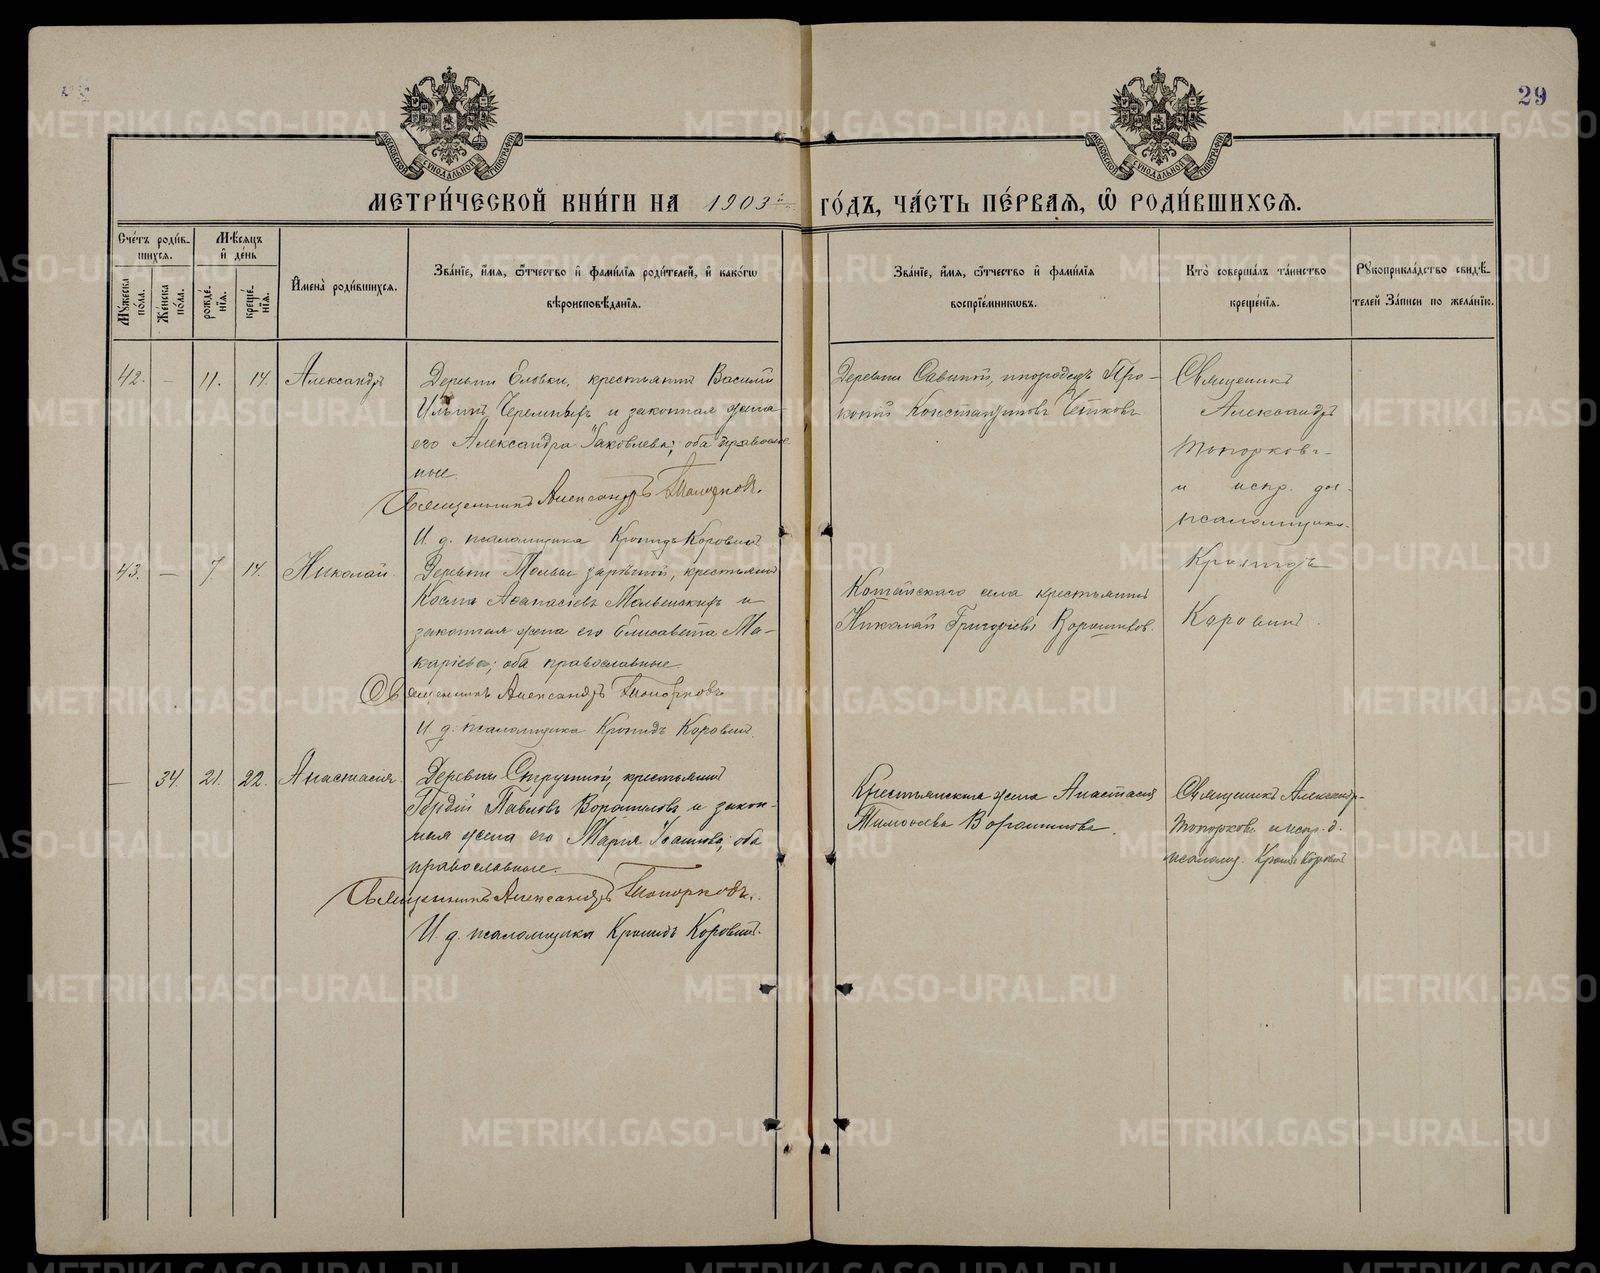 29
МЕТРИ́ЧЕСКОЙ КНИ́ГИ НА 1903й ГО́ДЪ, ЧА́СТЬ ПЕ́РВАЯ, Ѡ РОДИ́ВШИХСЯ.
МОСКОВСКОЙ СѴНОДАЛЬНОЙ ТИПОГРАФІИ
МОСКОВСКОЙ СѴНОДАЛЬНОЙ ТИПОГРАФІИ
Сче́тъ роди́в-
шихся.
Мѣ́сяцъ
и҆ де́нь
Мꙋ́жеска по́ла.
Же́нска по́ла.
рожде́нїя.
креще́нїя.
И҆мена̀ роди́вшихся.
Зва́нїе, и҆́мя, ѻ҆́тчество и҆ фами́лїя роди́телей, и҆ како́гѡ
вѣроисповѣ́данїя.
Зва́нїе, и҆́мя, ѻ҆́тчество и҆ фами́лїя
воспрїе́мникѡвъ.
Кто̀ соверша́лъ та́инство
креще́нїя.
Рꙋкоприкла́дство свидѣ́-
телей за́писи по жела́нїю.
42. — 11. 14. Александръ
Деревни Еловки, крестьянинъ Василий
Ильинъ Черемныхъ и законная жена
его Александра Яковлева; оба православ
ные.
Священникъ Александръ Топорковъ.
И. д. псаломщика Кронидъ Коровинъ
Деревни Савиной, инородецъ Про-
копій Константиновъ
Священникъ
Александръ
Топорковъ
и испр. дол.
псаломщика
Кронидъ
Коровинъ.
43. — 7 14. Николай
Деревни крестьянинъ
Косма Аѳанасіевъ и
законная жена его Елисавета Ма-
каріева; оба православные.
Священникъ Александръ Топорковъ
И. д. псаломщика Кронидъ Коровинъ.
села крестьянинъ
Николай Григоріевъ
— 34. 21. 22. Анастасія
Деревни крестьянинъ
Гордій Павловъ Ворошиловъ и закон-
ная жена его Марія Іванова; оба
православные.
Священникъ Александръ Топорковъ.
И. д. псаломщика Кронидъ Коровинъ.
Крестьянская жена Анастасія
Тимоѳева Ворошилова.
Священникъ Александръ
Топорковъ и испр. д.
псаломщ. Кронидъ Коровинъ
METRIKI.GASO-URAL.RU